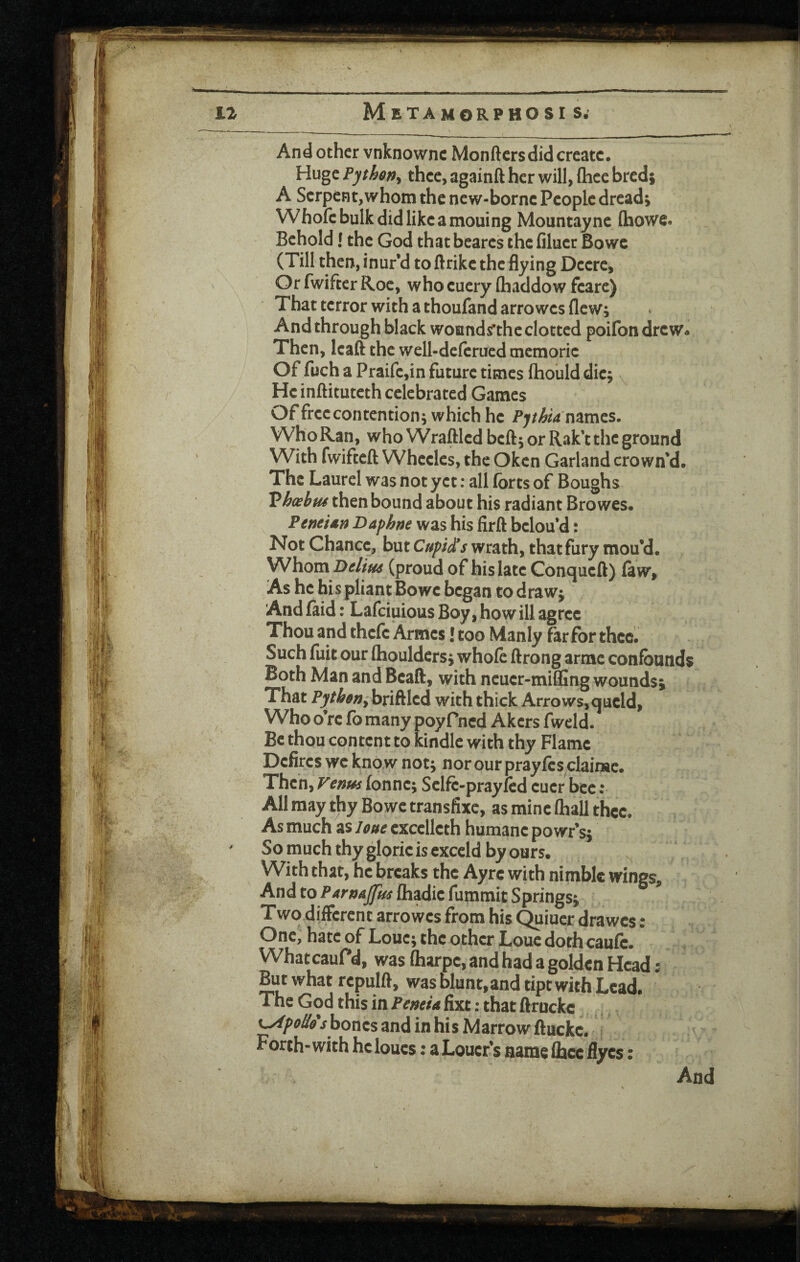 12 METAMORPHOSIS.
And other vnknowne Monſters did create.
Huge Python, thee, againſt her will, ſhee bred;
A Serpent, whom the new-borne People dread;
Whoſe bulk did like a mouing Mountayne ſhowe.
Behold! the God that beares the ſiluer Bowe
(Till then, inur'd to ſtrike the flying Deere,
Or ſwifter Roe, who euery ſhaddow feare)
That terror with a thouſand arrowes ſlew;
And through black wounds the clotted poiſon drew.
Then, leaſt the well-deſerued memorie
Of ſuch a Praiſe, in future times ſhould die;
He inſtituteth celebrated Games
Of free contention; which he Pythia names.
Who Ran, who Wraſtled beſt; or Rak't the ground
With ſwifteſt Wheeles, the Oken Garland crown'd.
The Laurel was not yet: all ſorts of Boughs
Phœbus then bound about his radiant Browes.
Peneian Daphne was his firſt belou'd:
Not Chance, but Cupid's wrath, that fury mou'd.
Whom Delius (proud of his late Conqueſt) ſaw,
As he his pliant Bowe began to draw;
And ſaid: Laſciuious Boy, how ill agree
Thou and theſe Armes! too Manly far for thee.
Such ſuit our ſhoulders; whoſe ſtrong arme confounds
Both Man and Beaſt, with neuer-miſſing wounds;
That Python, briſtled with thick Arrows, queld,
Who o're ſo many poyſ'ned Akers ſweld.
Be thou content to kindle with thy Flame
Deſires we know not; nor our prayſes claime.
Then, Venus ſonne; Selfe-prayſed euer bee:
All may thy Bowe transfixe, as mine ſhall thee.
As much as Ioue excelleth humane powr's;
So much thy glorie is exceld by ours.
With that, he breaks the Ayre with nimble wings,
And to Parnaſſus ſhadie ſummit Springs;
Two different arrowes from his Quiuer drawes:
One, hate of Loue; the other Loue doth cauſe.
What cauſ'd, was ſharpe, and had a golden Head:
But what repulſt, was blunt, and tipt with Lead.
The God this in Peneia fixt: that ſtrucke
Apollo's bones and in his Marrow ſtucke.
Forth-with he loues: a Louer's name ſhee flyes:
And